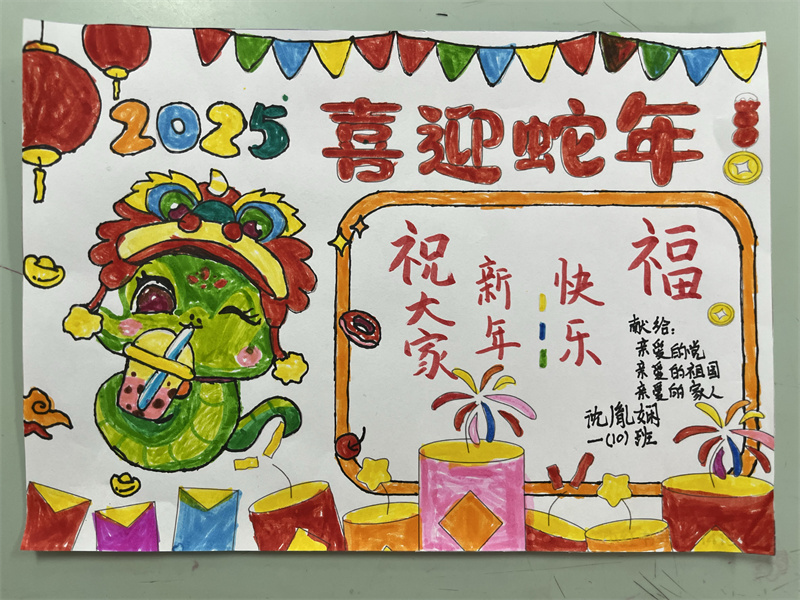 2025
喜迎蛇年
祝大家
新年
快乐
福
献给：
亲爱的党
亲爱的祖国
亲爱的家人
沈胤娴
一(10)班